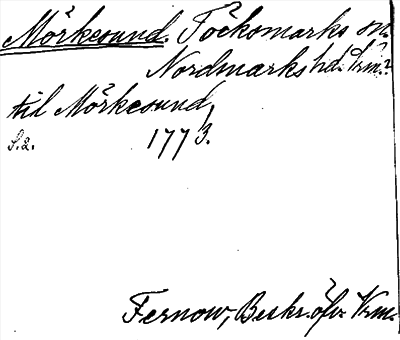 Mörkesund. Töcksmarks sn.
Nordmarks hd. Vrm.
til Mörkesund,
S. 2. 1773.
Fernow, Beskr. öfv. Vrm.